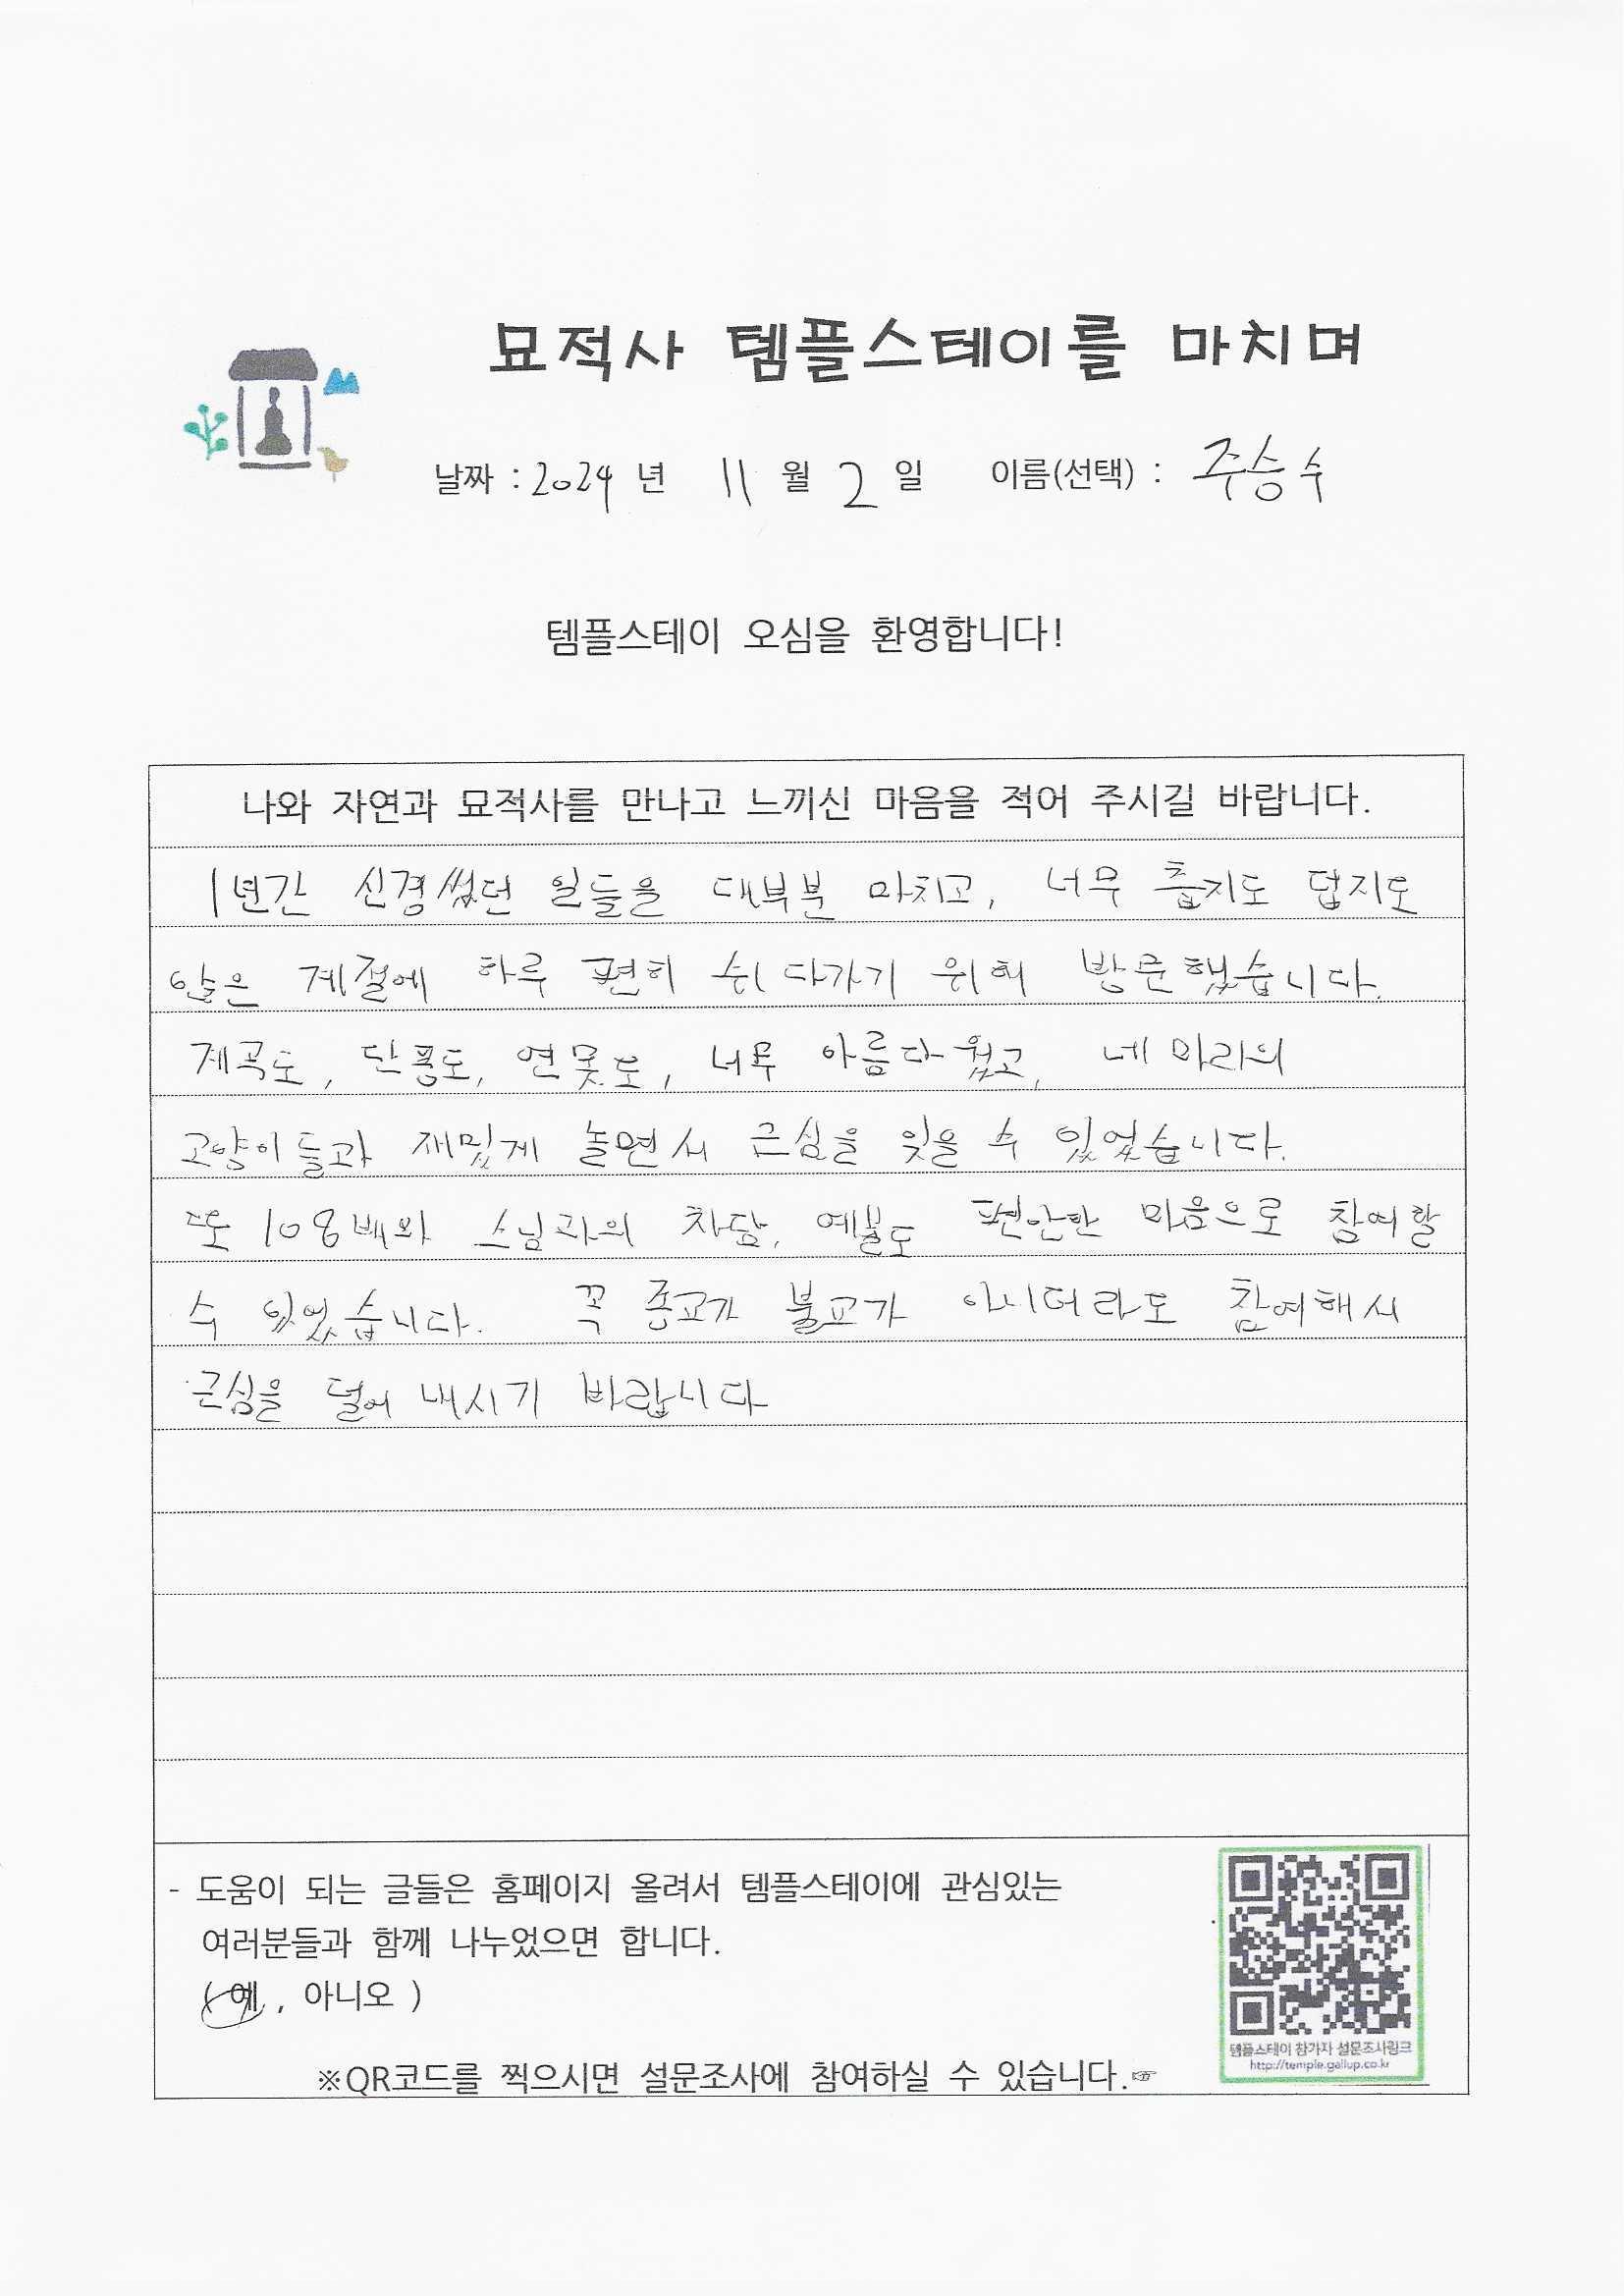 묘적사 템플스테이를 마치며
날짜 : 2024 년 11 월 2 일 이름(선택) : 주승수
템플스테이 오심을 환영합니다!
나와 자연과 묘적사를 만나고 느끼신 마음을 적어 주시길 바랍니다.
1년간 신경썼던 일들을 대부분 마치고, 너무 춥지도 덥지도
않은 계절에 하루 편히 쉬다가기 위해 방문했습니다.
계곡도, 단풍도, 연못도, 너무 아름다웠고, 네 마리의
고양이들과 재밌게 놀면서 근심을 잊을 수 있었습니다.
또 108배와 스님과의 차담, 예불도 편안한 마음으로 참여할
수 있었습니다. 꼭 종교가 불교가 아니더라도 참여해서
근심을 덜어 내시기 바랍니다
- 도움이 되는 글들은 홈페이지 올려서 템플스테이에 관심있는
여러분들과 함께 나누었으면 합니다.
( 예 , 아니오 )
템플스테이 참가자 설문조사링크
http://temple.gallup.co.kr
※QR코드를 찍으시면 설문조사에 참여하실 수 있습니다.☞